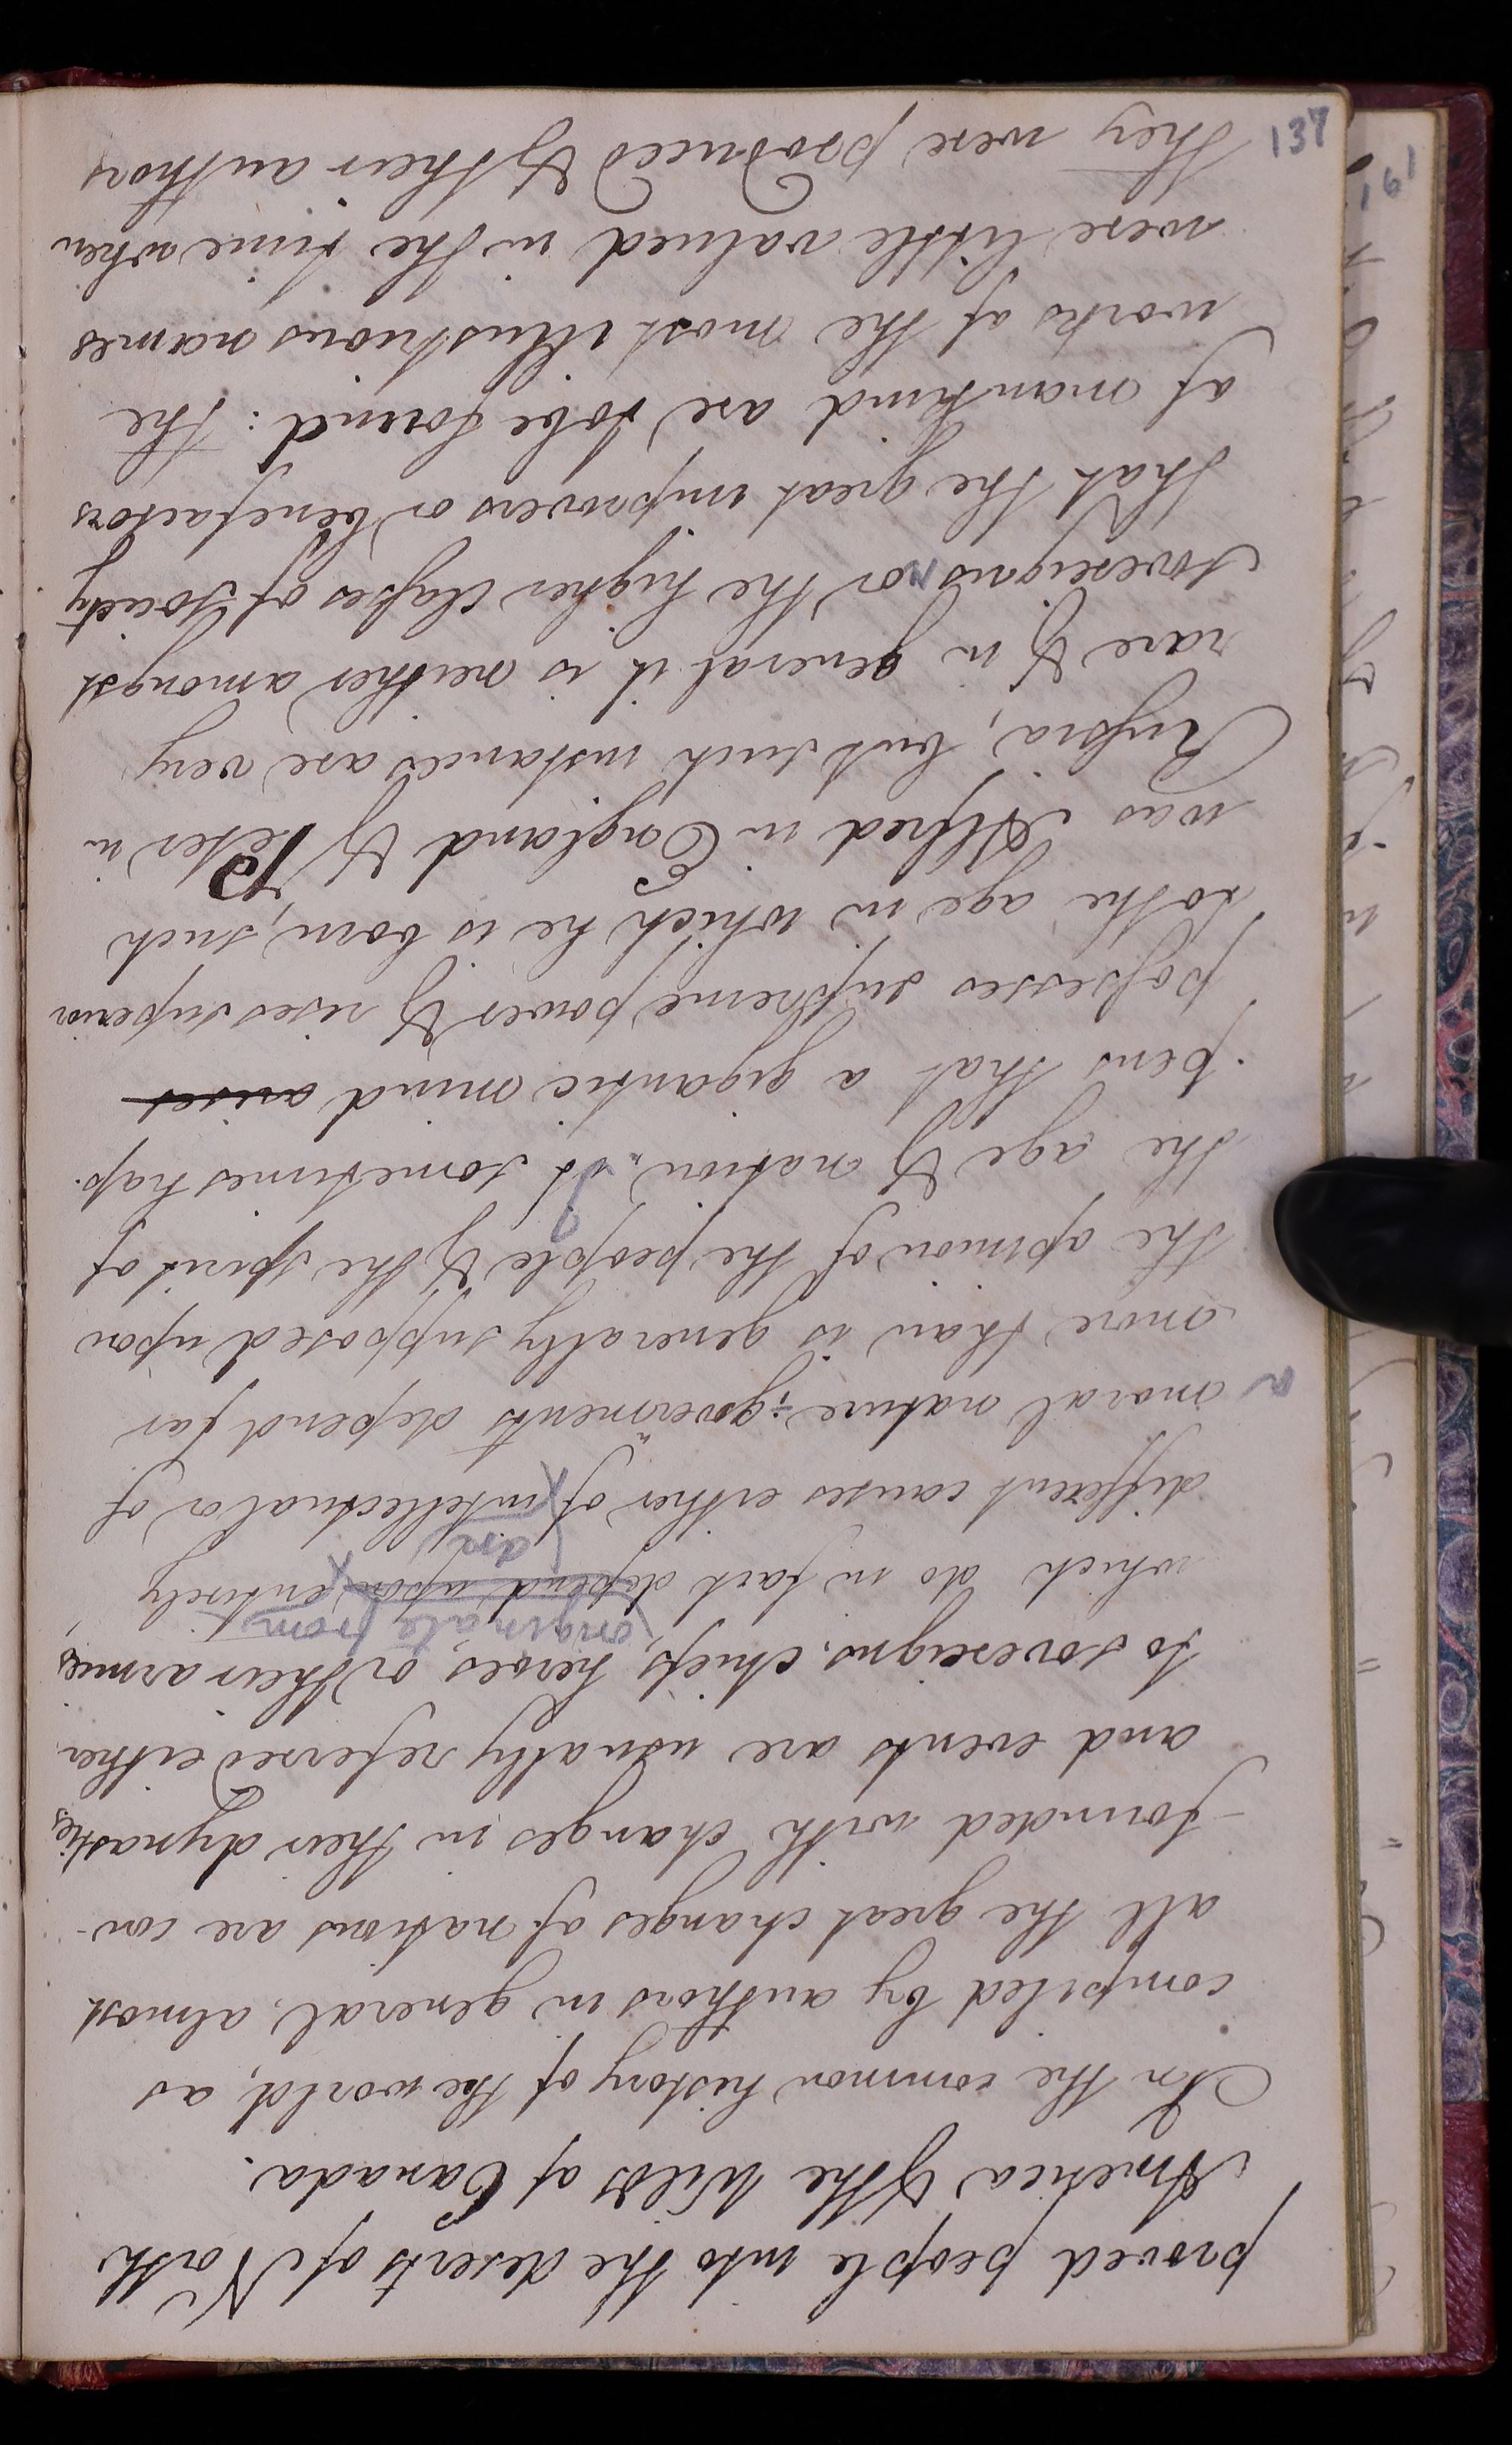 proved people into the deserts of North
America & the Wilds of Canada.
In the common history of the world, as
compiled by authors in general, almost
all the great changes of nations are con-
-founded with changes in their dynasties,
and events are usually referred either
to sovereigns, chiefs, heroes, or their armies,
originate from
which do in fact depend upon entirely
an
different causes either of intellectual or of
moral nature; governments depend far
more than is generally supposed upon
the opinion of the people & the spirit of
the age & nation. It sometimes hap-
pens that a gigantic mind arises
possesses supreme power & rises superior
to the age in which he is born, such
was Alfred in England & Peter in
Russia, but such instances are very
rare & in general it is neither amongst
sovereigns nor the higher classes of society
that the great improvers or benefactors
of mankind are to be found: the
works of the most illustrious names
were little valued in the time when
they were produced & their authors
137
161